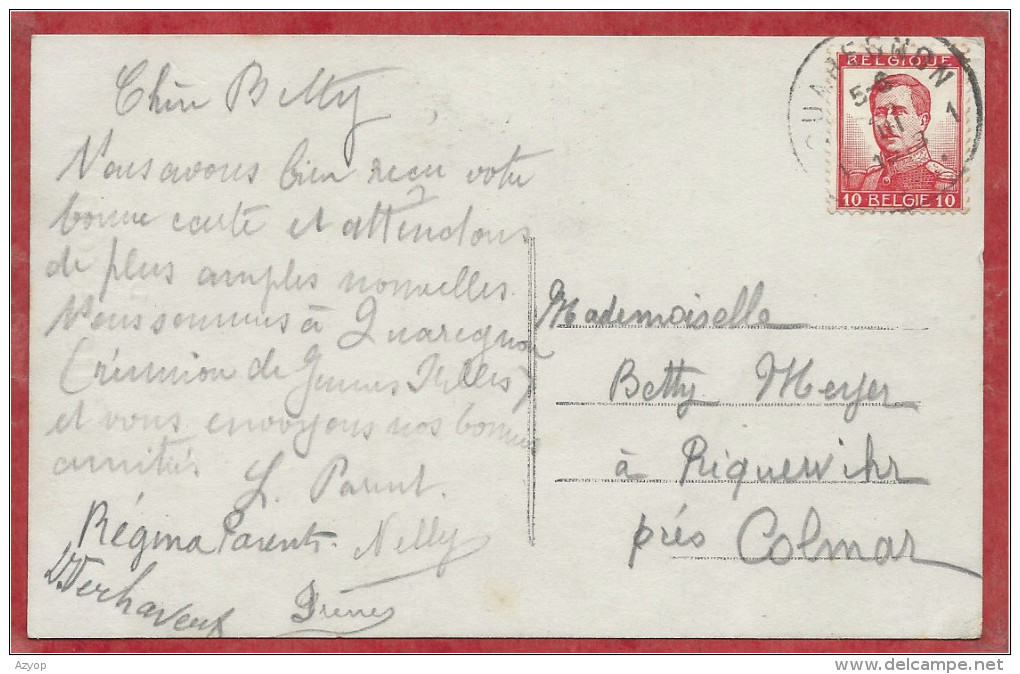 Chère Betty,
Nous avons bien reçu votre
bonne carte et attendons
de plus amples nouvelles.
Nous sommes à Quaregnon
(réunion de Jeunes Filles)
et vous envoyons nos bonnes
amitiés
L. Parent.
Régina Parent. Nelly
Irènes
BELGIQUE
10 BELGIE 10
Mademoiselle
Betty Meyer
à Riquewihr
près Colmar
Azyop
www.delcampe.net